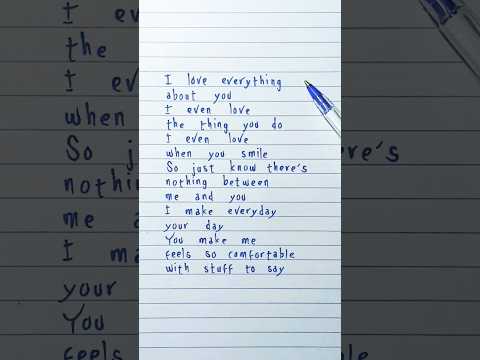 I love everything
about you
I even love
the thing you do
I even love
when you smile
So just know there's
nothing between
me and you
I make everyday
your day
You make me
feels so comfortable
with stuff to say